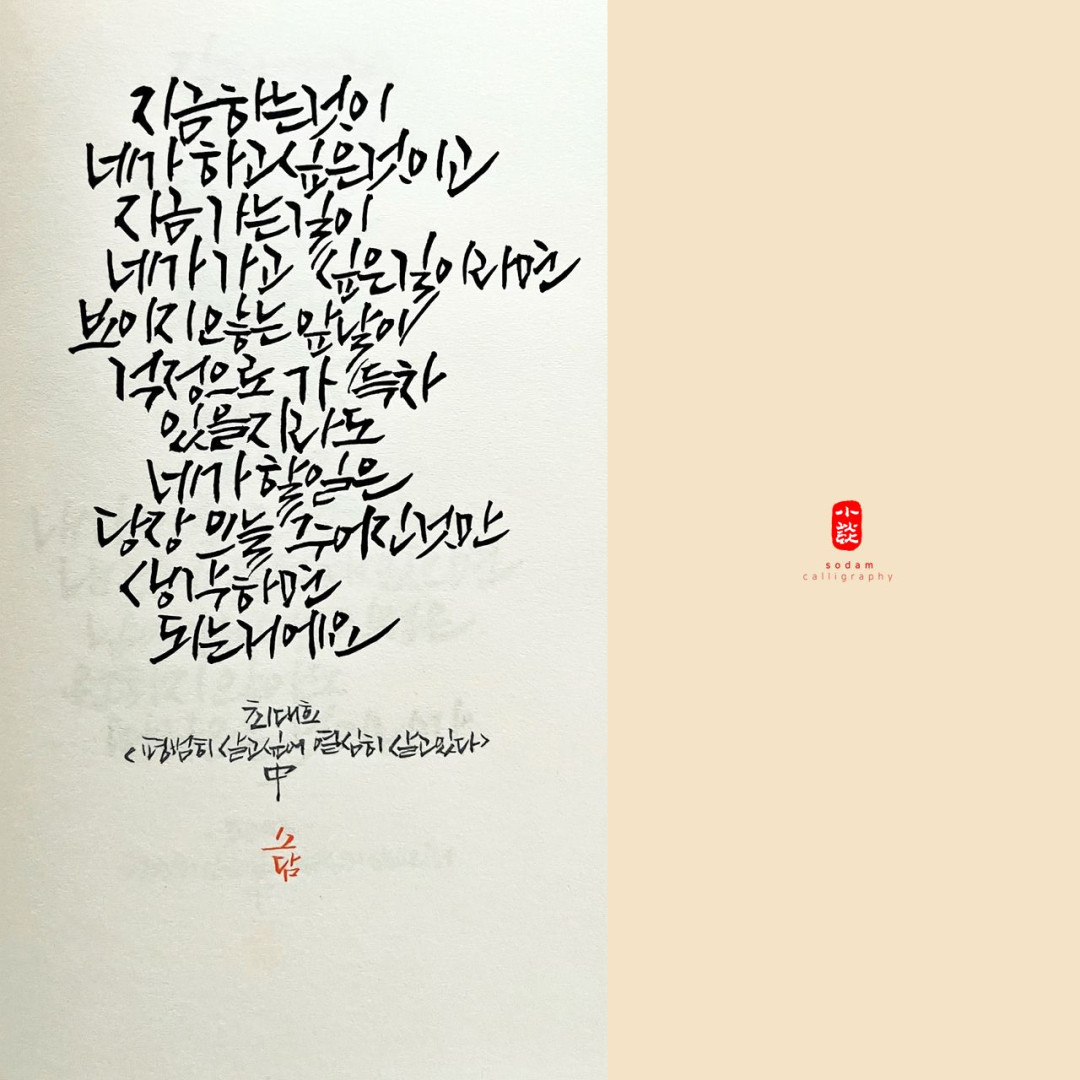 지금 하는 것이
네가 하고 싶은 것이고
지금 가는 길이
네가 가고 싶은 길이라면
보이지 않는 앞날이
걱정으로 가득차
있을지라도
네가 할 일은
당장 오늘 주어진 것만
생각하면
되는거예요
최대호
<평범히 살고싶어 열심히 살고있다>
中
소담
小談
sodam
calligraphy